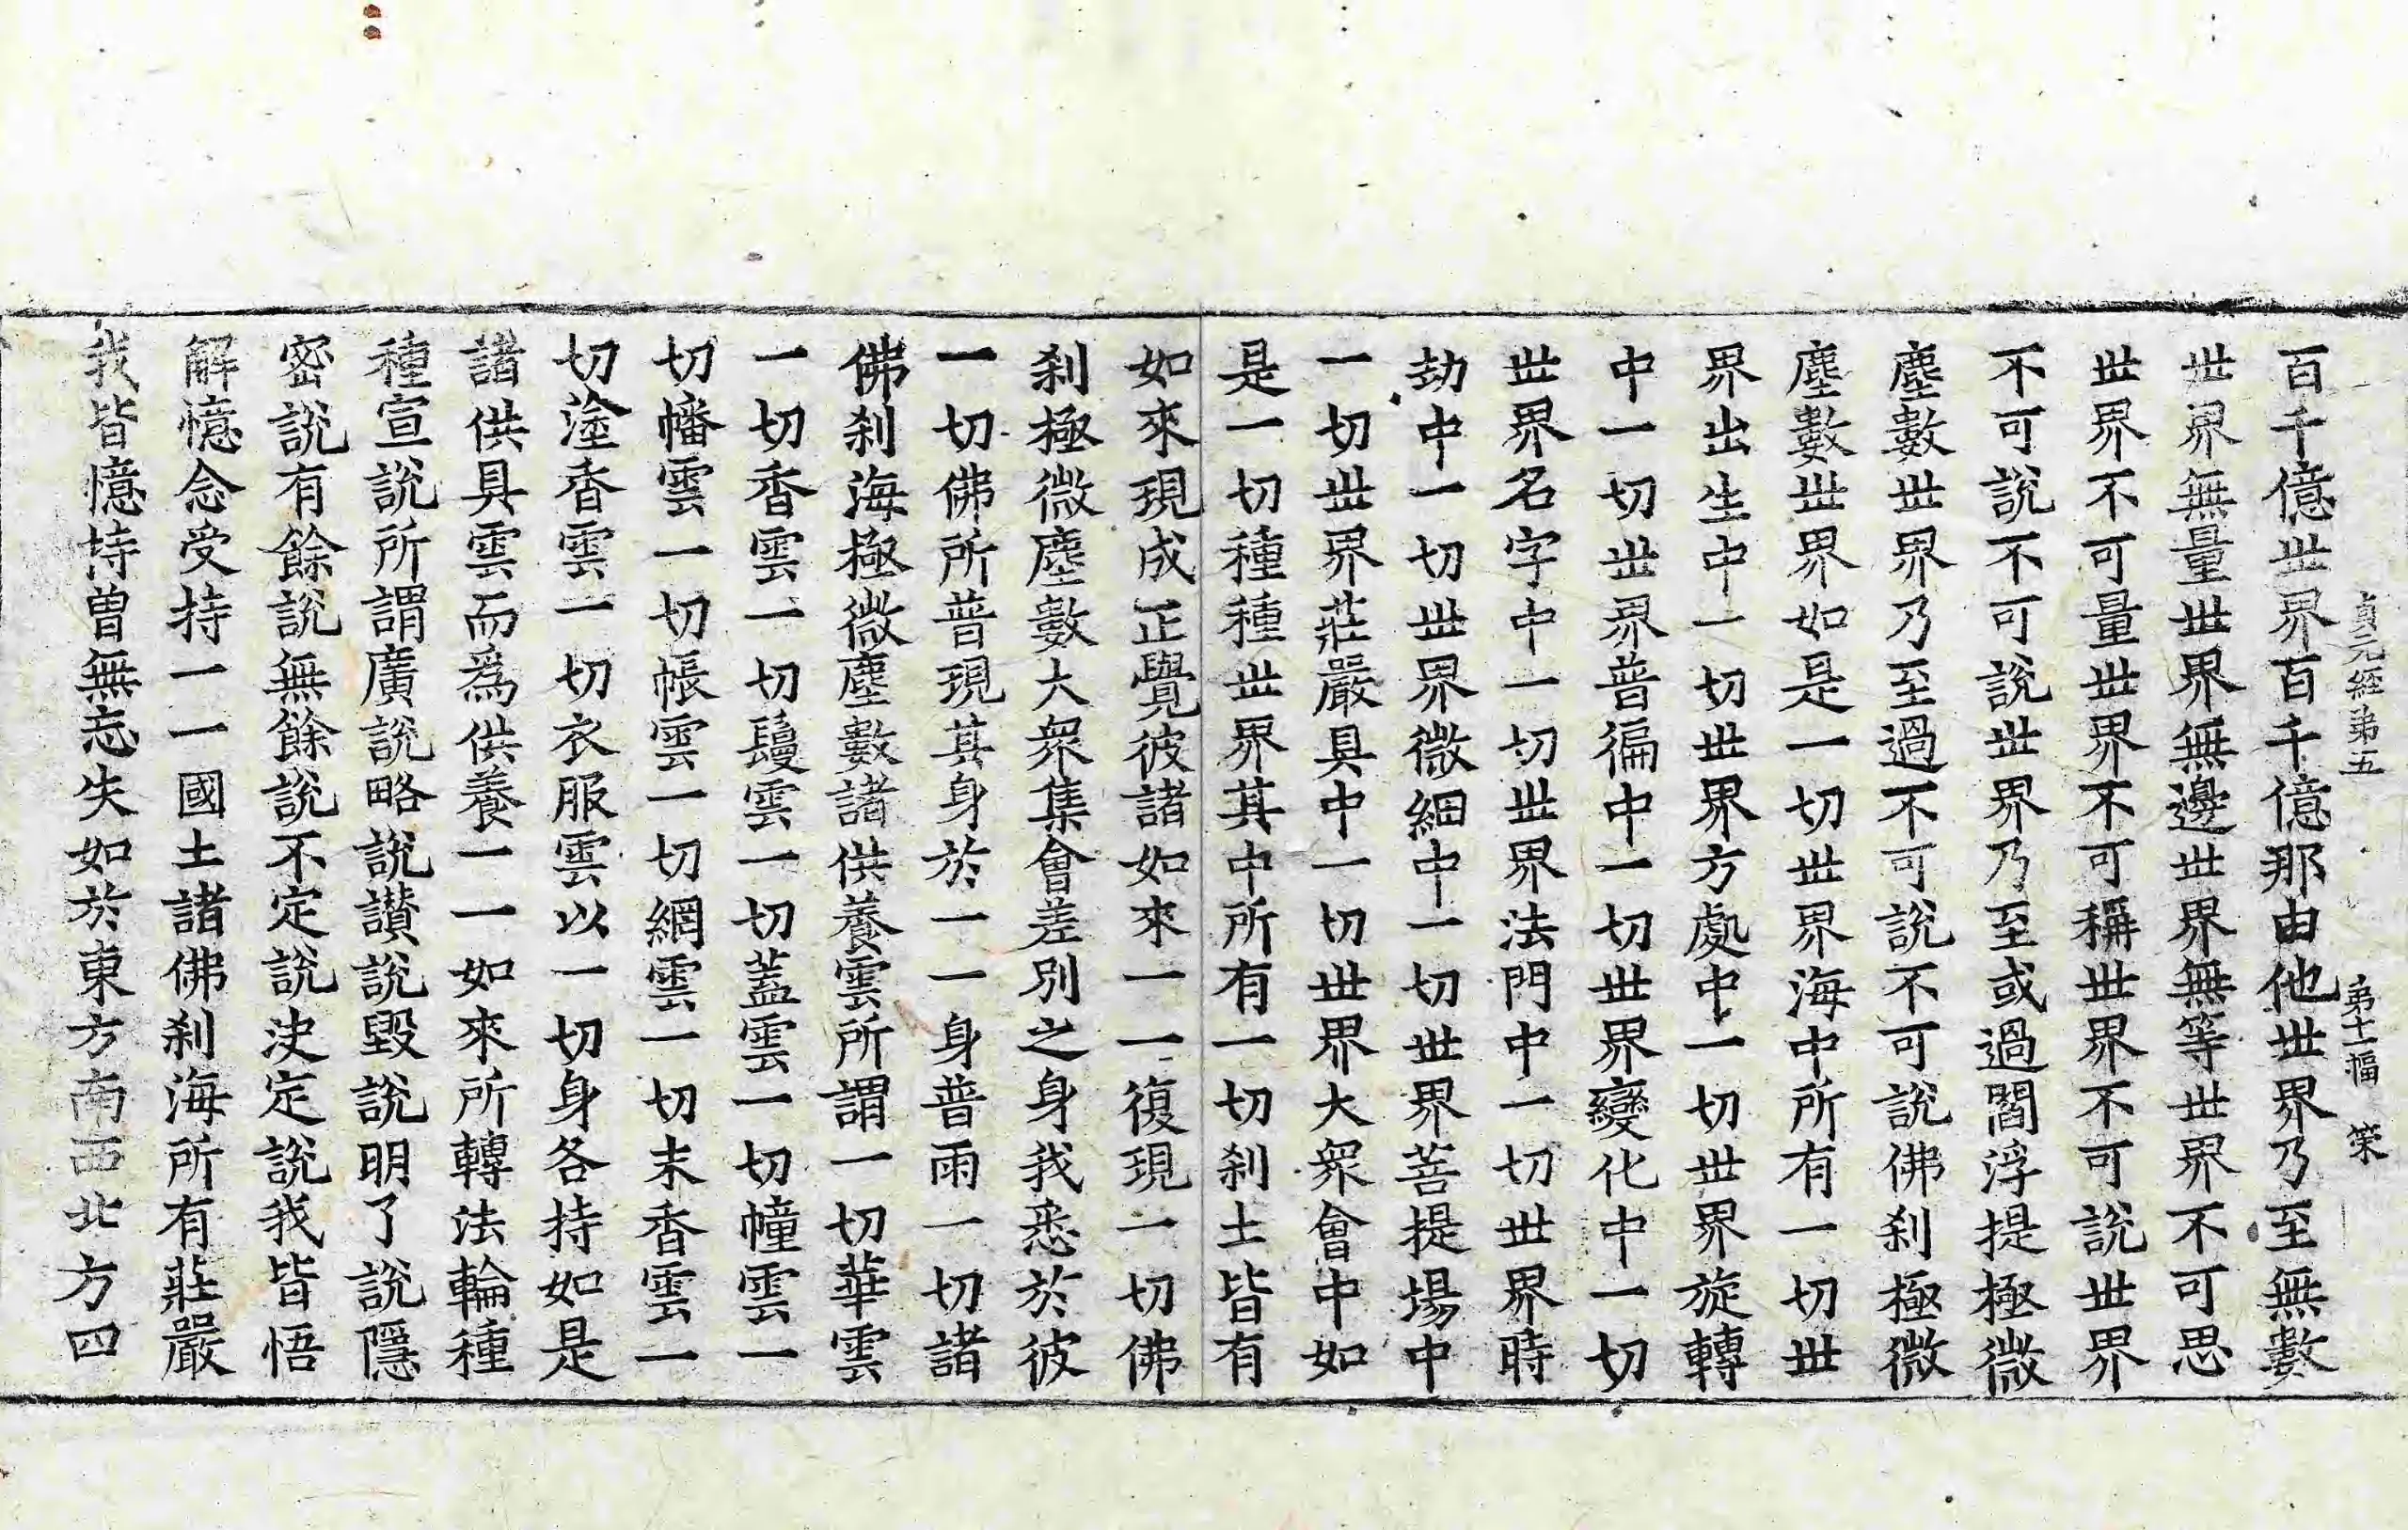 貞元經弟五 弟十二幅 榮
百千億世界百千億那由他世界乃至無數
世界無量世界無邊世界無等世界不可思
世界不可量世界不可稱世界不可說世界
不可說不可說世界乃至或過閻浮提極微
塵數世界乃至過不可說不可說佛刹極微
塵數世界如是一切世界海中所有一切世
界出生中一切世界方處中一切世界旋轉
中一切世界普徧中一切世界變化中一切
世界名字中一切世界法門中一切世界時
劫中一切世界微細中一切世界菩提場中
一切世界莊嚴具中一切世界大衆會中如
是一切種種世界其中所有一切刹土皆有
如來現成正覺彼諸如來一一復現一切佛
刹極微塵數大衆集會差別之身我悉於彼
一切佛所普現其身於一一身普雨一切諸
佛刹海極微塵數諸供養雲所謂一切華雲
一切香雲一切鬘雲一切蓋雲一切幢雲一
切幡雲一切帳雲一切網雲一切末香雲一
切塗香雲一切衣服雲以一切身各持如是
諸供具雲而爲供養一一如來所轉法輪種
種宣說所謂廣說略說讃說毀說明了說隱
密說有餘說無餘說不定說決定說我皆悟
解憶念受持一一國土諸佛刹海所有莊嚴
我皆憶持曾無忘失如於東方南西北方四